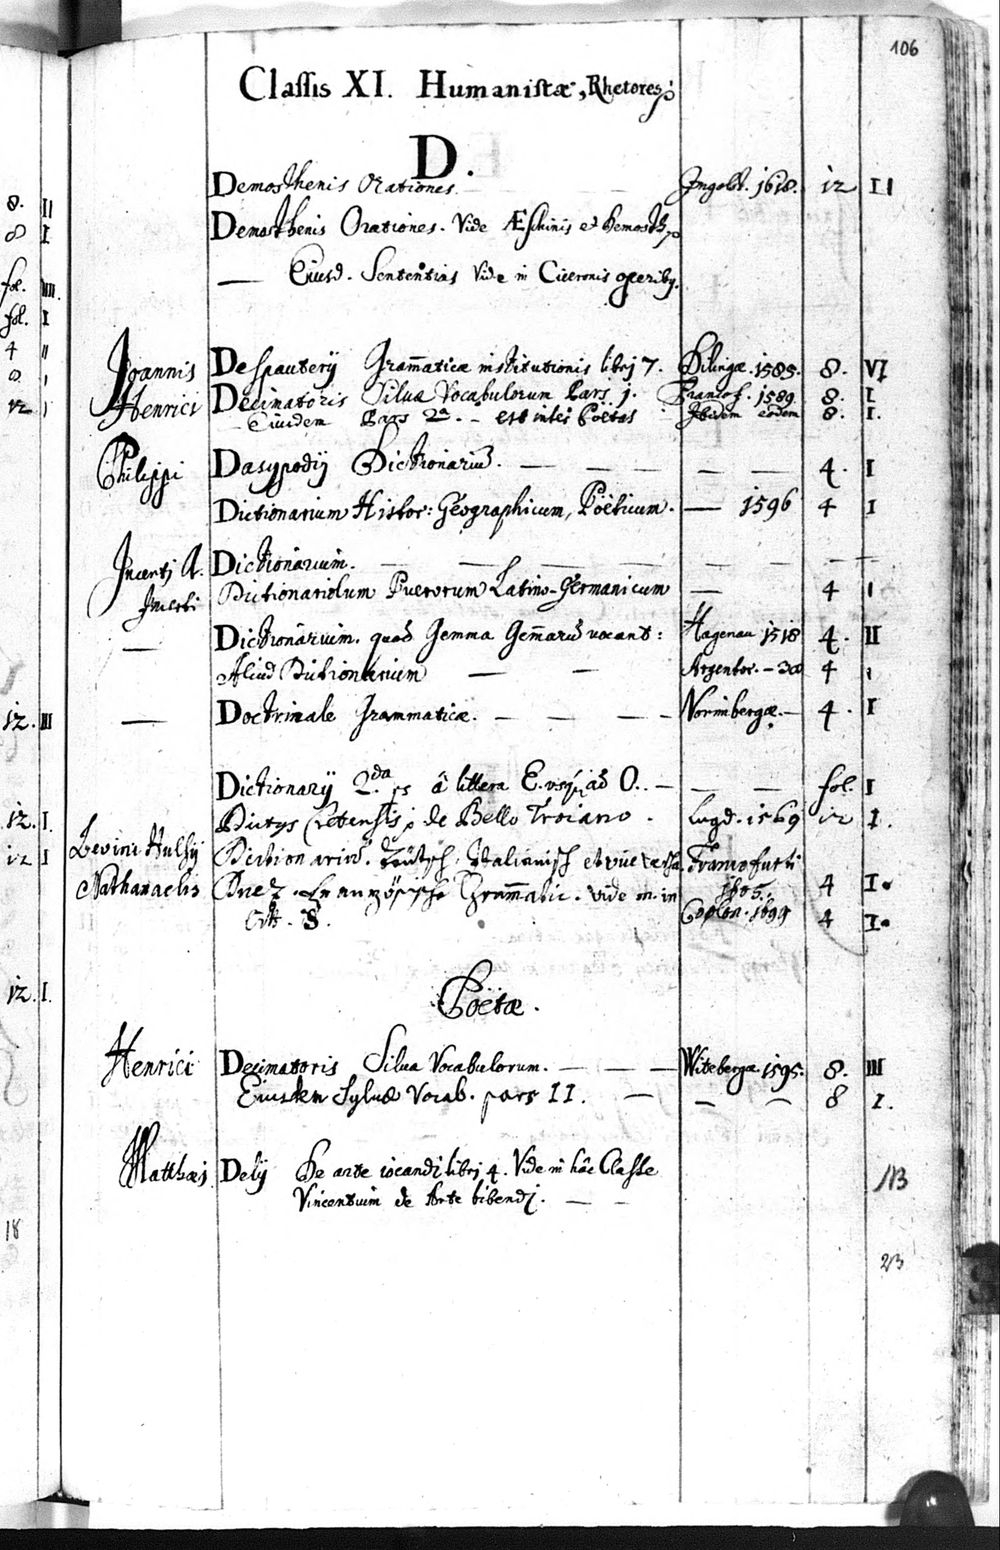 106
Classis XI. Humanistæ, Rhetores,
D.
Demosthenis Orationes. Ingolst. 1618. 12 II
Demosthenis Orationes. Vide Æschinis et Demosth.
— Eiusd. Sententias Vide in Ciceronis operibq.
Joannis Despauterij Gram̃aticæ institutionis librj 7. Dilingæ. 1585. 8. VI
Henrici Decimatoris Silua Vocabulorum Pars 1. Francof. 1589. 8. I
Eiusdem Pars 2a. - est inter Poetas Ibidem eodem 8. I.
Philippi Dasypodij Dictionariũ. — — — — — 4. I
Dictionarium Histor: Geographicum, Poëticum. — 1596 4 I
Incertj A. Dictionarium. — — — — — —
Incerti Dictionariolum Puerorum Latino-Germanicum — 4 I
— Dictionarium. quod Gemma Gem̃arũ vocant: Hagenau 1518 4. II
Aliud Dictionarium — — Argentor. — 4 I
— Doctrinale Grammaticæ. — — — — Norimbergæ. — 4. I
Dictionarij 2.da ps à littera E. usq; ad O. — — — fol. I
Dictys Cretensis, de Bello Troiano. Lugd. 1569 12 I.
Levini Hulsij Dictionariũ. Teutsch. Italianisch et Francofurti
1605. 4 I.
Nathanaelis Duez. Französische Gram̃atic. vide in
Litt. S. Colon. 1699 4 I.
Poëtæ.
Henrici Decimatoris Silua Vocabulorum. — — — Witebergæ 1595. 8. III
Eiusdem Syluæ Vocab. pars II. — — — 8 I.
Matthæi Delij De arte iocandi librj 4. Vide in hâc Classe
Vincentium de Arte bibendj. — —
8. II
8 I
fol. IIII.
fol. I
4 II
8 I
12 I
12. III
12. I.
12 I
12. I.
18